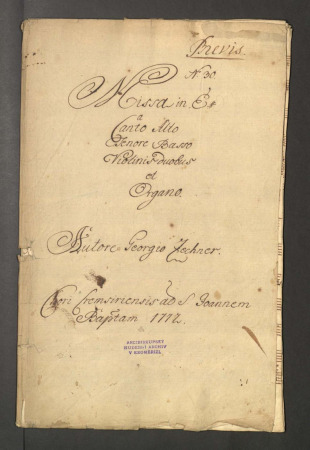 Brevis
N 30.
Missa in E♯
a
Canto Alto
Tenore Basso
Violinis duobus
et
Organo.
Autore Georgio Zechner.
Chori Cremsiriensis ad S. Joannem
Baptam 1772.
ARCIBISKUPSKÝ
HUDEBNÍ ARCHIV
V KROMĚŘÍŽI.